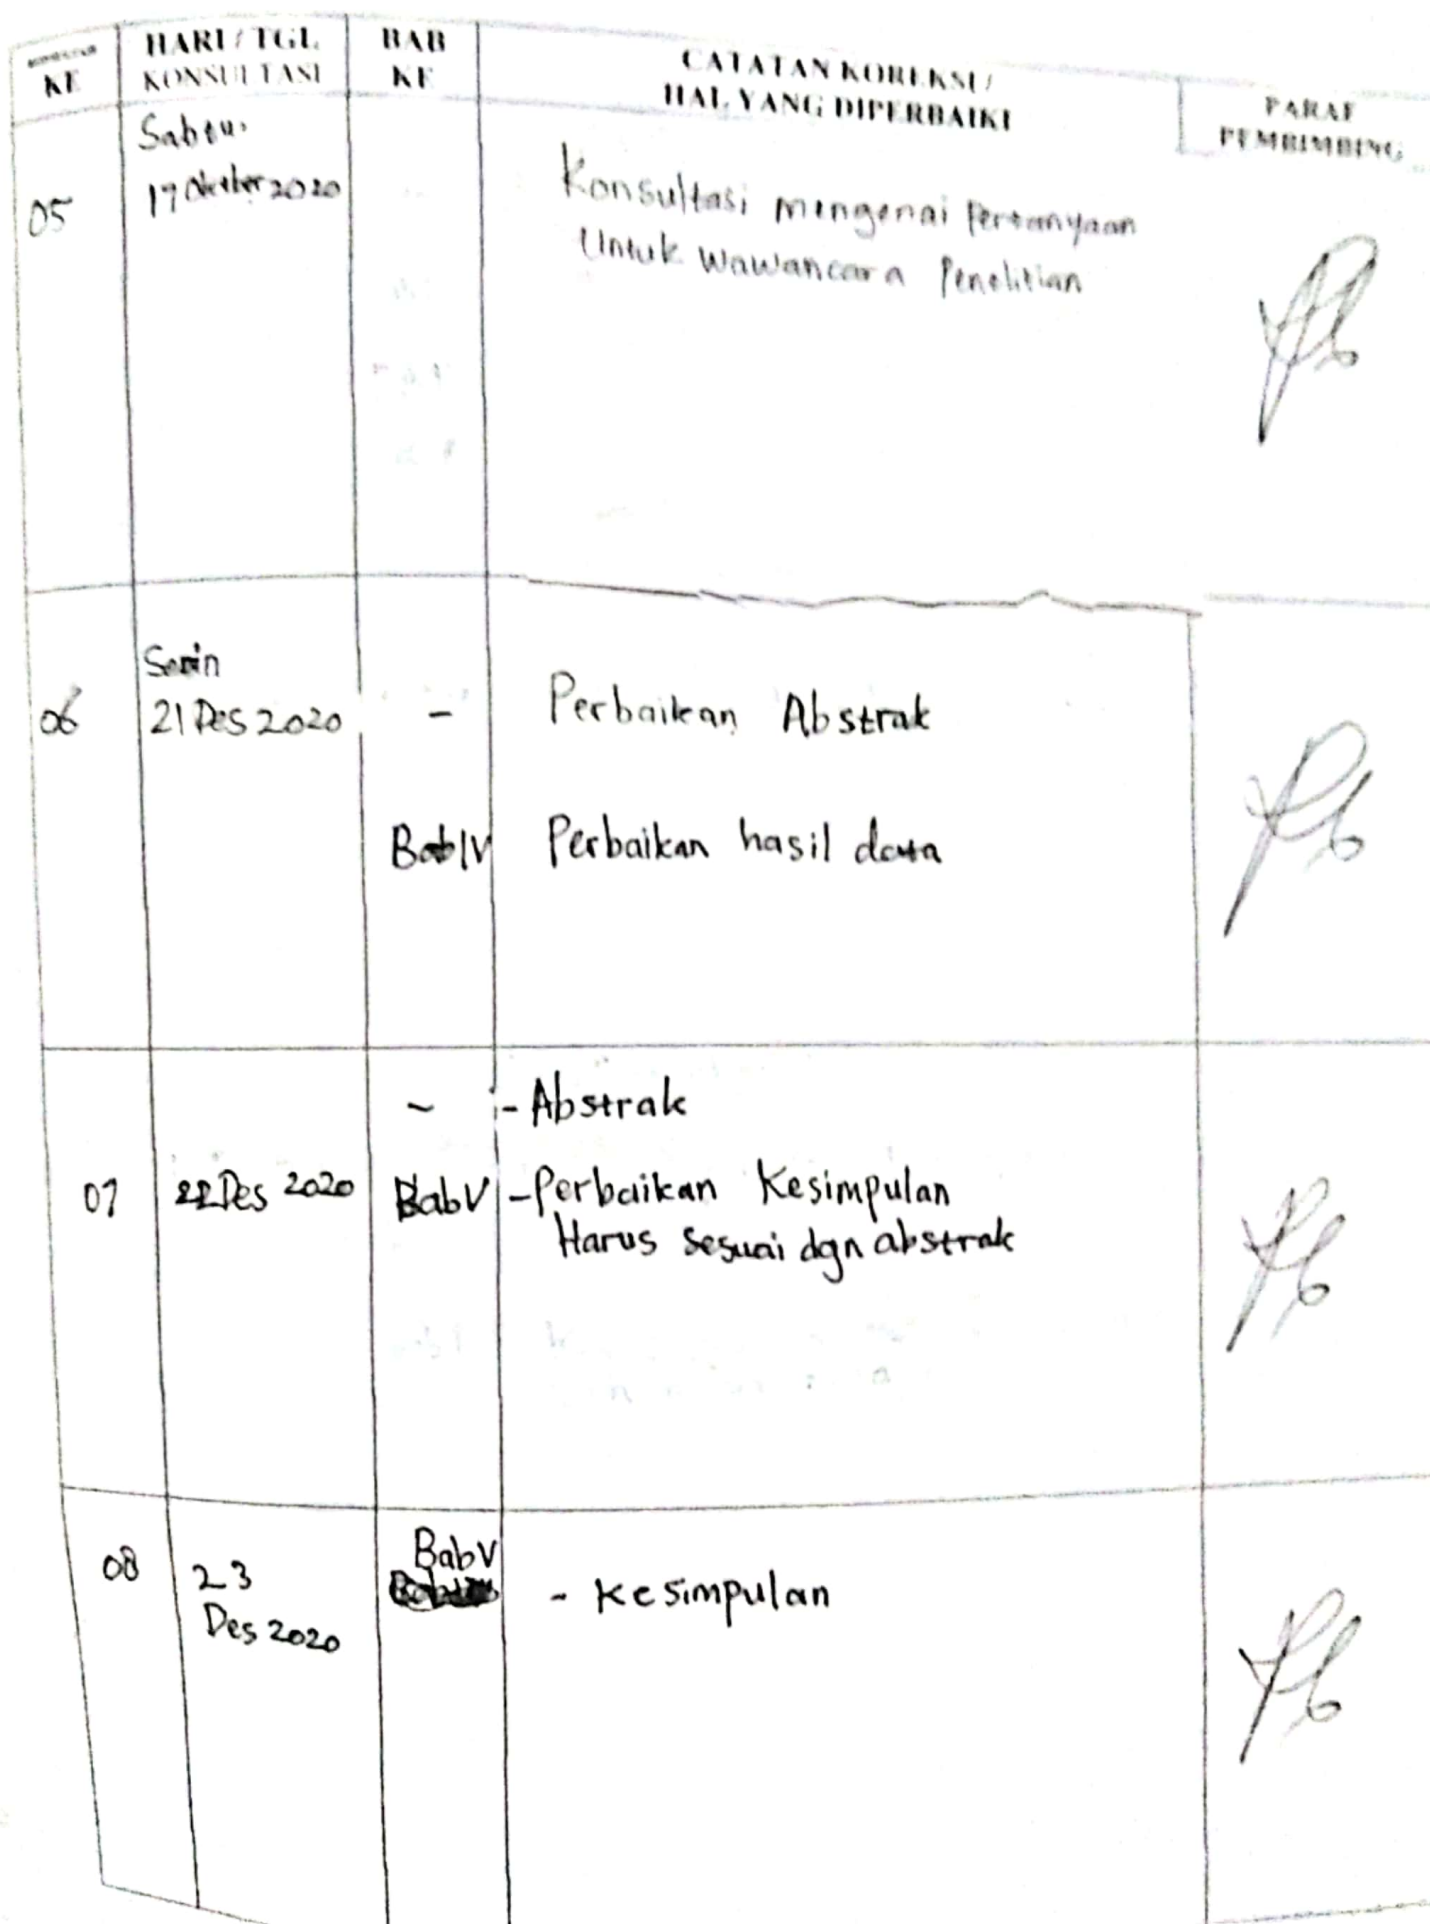 KE
HARI / TGL
KONSULTASI
BAB
KE
CATATAN KOREKSI /
HAL YANG DIPERBAIKI
PARAF
PEMBIMBING
05
Sabtu,
17 Oktober 2020
Konsultasi mengenai Pertanyaan
Untuk Wawancara Penelitian
06
Senin
21 Des 2020
-
Perbaikan Abstrak
Bab IV
Perbaikan hasil data
07
22 Des 2020
-
- Abstrak
Bab V
- Perbaikan Kesimpulan
Harus sesuai dgn abstrak
08
23
Des 2020
Bab V
- Kesimpulan